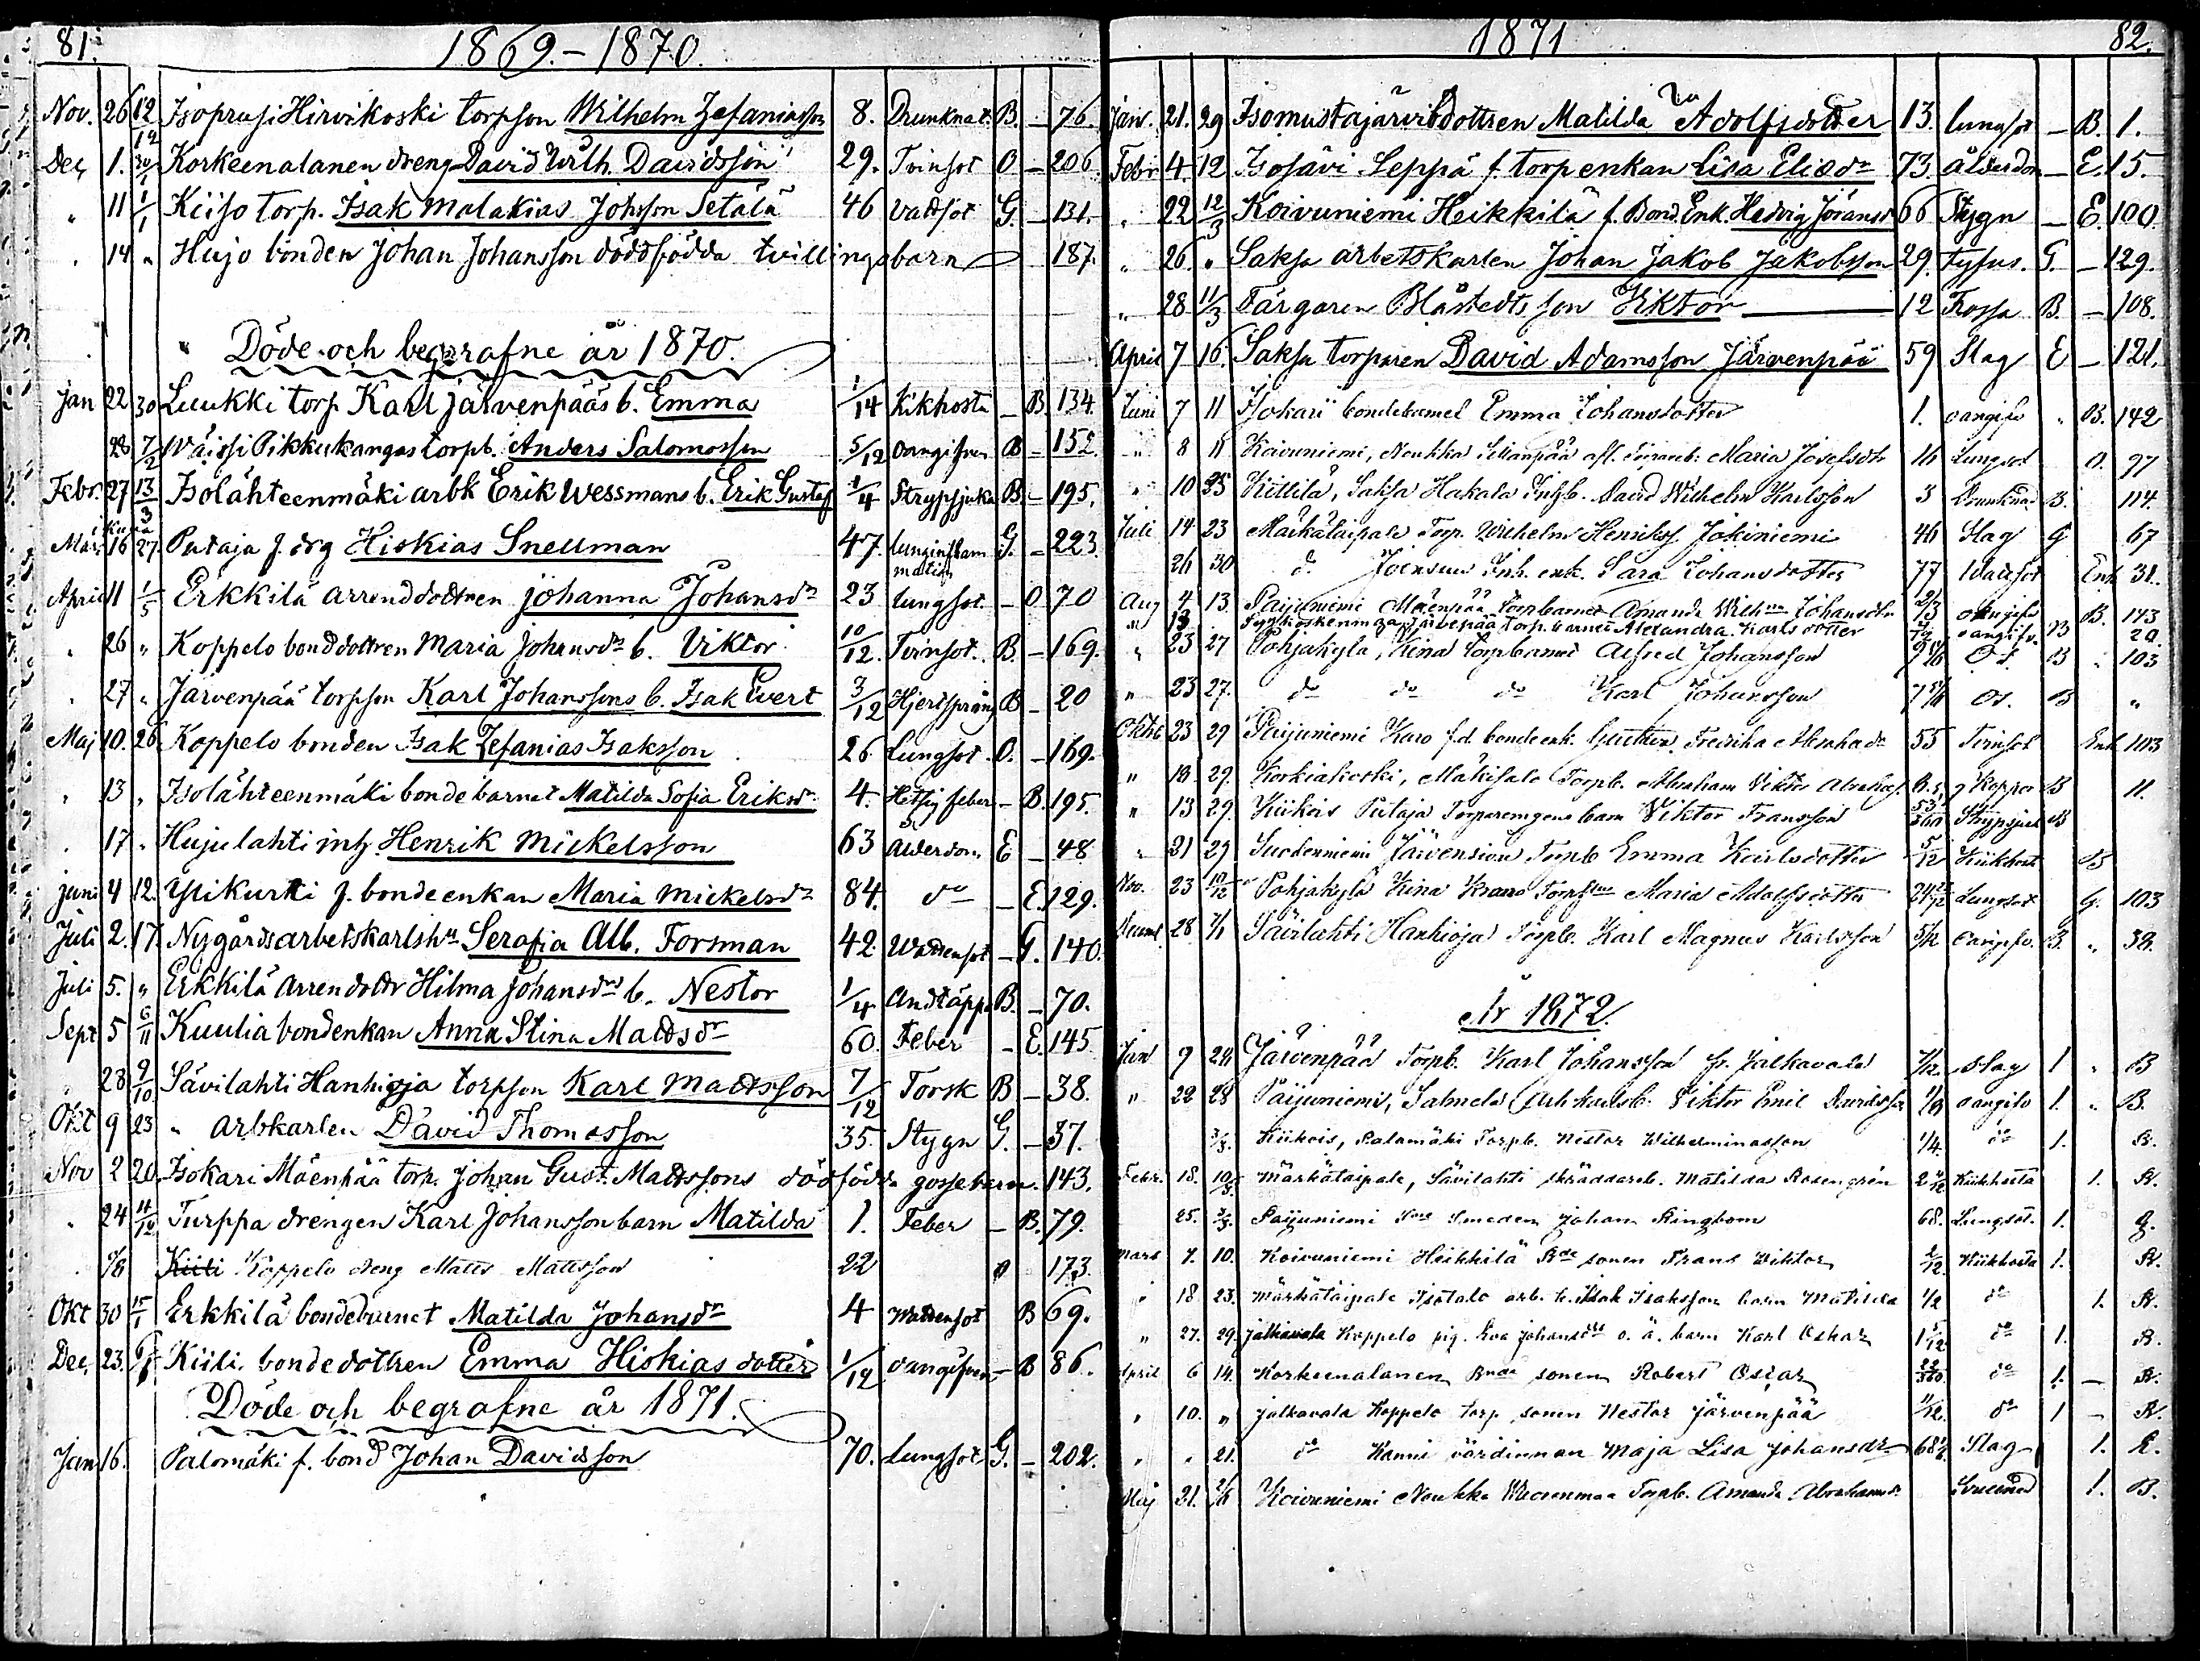 81.
1869.-1870.
Nov. 26 12/12 Isoprusi Hirvikoski torpson Wilhelm Zefaniasson 8. Drunknat. B. - 76.
Dec. 1. 30/1 Korkeenalanen dreng David Wilh. Davidsson 29. Tvinsot O - 206.
" 11 1/1 Kiiso torp. Isak Malakias Johsson Setälä 46 Vattsot G. - 131.
" 14 " Hujo bonden Johan Johansson dödsfödda tvillingabarn 187.
Döde och begrafne år 1870.
Jan 22 30 Luukki torp Karl Järvenpääs b. Emma 1/14 Kikhosta - B. 134.
28 7/2 Väissi Pikkukangas torpb. Anders Salomosson 5/12 oangifven B - 152.
Febr. 27 13/3 Isolähteenmäki arbk Erik Wessmans b. Erik Gustaf 1/4 Strypsjuka B - 195.
Mars 16 27. Putaja f. drg Hiskias Snellman 47. lunginflammation G. - 223.
April 11 1/5 Erkkilä arrenddottren Johanna Johansdr 23 lungsot. - O 70
" 26 " Koppelo bonddottren Maria Johansdr b. Viktor 10/12. Tvinsot. B. - 169.
" 27 " Järvenpää torpson Karl Johanssons b. Isak Evert 3/12 Hjertsprång B - 20
Maj 10. 26 Koppelo bonden Isak Zefanias Isaksson 26 Lungsot. O. - 169.
" 13 " Isolähteenmäki bondebarnet Matilda Sofia Eriksdr. 4. Hetsig feber - B. 195.
" 17 " Hujulahti inh. Henrik Mickelsson 63 Ålderdom. E - 48
Juni 4 12. Ylikurki f. bondeenkan Maria Mickelsdr 84. do - E. 129.
Juli 2. 17. Nygårds arbetskarlshu Serafia Alb. Forsman 42. Wattensot - G. 140.
Juli 5. " Erkkilä arrendottr Hilma Johansdrs b. Nestor 1/4 Andtäppa B. - 70.
Sept 5 6/11 Kuulia bondenkan Anna Stina Mattsdr 60. Feber - E. 145.
" 28 9/10 Sävilahti Hanhioja torpson Karl Mattsson 7/12 Torsk B - 38.
Okt 9 23 " arbkarlen David Thomasson 35. Stygn G. - 37.
Nov 2 20. Isokari Mäenpää torp. Johan Gust. Mattssons dödfödda gossebarn. 143.
" 24 11/12 Turppa drengen Karl Johansson barn Matilda 1. Feber - B. 79.
Koppelo dreng Matts Mattsson 22 O 173.
Okt 30 15/1 Erkkilä bondebarnet Matilda Johansdr 4 Wattensot B 69.
Dec. 23. 6/1 Kiili bondedottren Emma Hiskiasdotter 1/12 oangifven - B 86.
Döde och begrafne år 1871.
Jan 16. Palomäki f. bond Johan Davidsson 70. Lungsot G. - 202.
1871
82.
Jan. 21. 29 Isomustajärvi bdottren Matilda Adolfsdotter 13. lungsot - B. 1.
Febr 4. 12 Isosävi Seppä f. torpenkan Lisa Eliedr 73 ålderdom - E. 15.
" 22 12/3 Koivuniemi Heikkilä f. Bond. Enk. Hedvig Göransdr 66 Stygn - E. 100.
" 26. " Saksa arbetskarlen Johan Jakob Jakobsson 29. Tyfus. G. - 129.
" 28 11/3 Färgaren Blåstedts son Viktor 12 Rossa B. - 108.
April 7 16. Saksa torparen David Adamsson Järvenpää 59 Slag E - 121.
Juni 7 11 Isokari bondebarnet Emma Johansdotter 1. oangifv " B. 142
" 8 11 Koivuniemi, Noukka Maria Josefsdr 16 Lungsot O. 97
" 10 25 Kuttila, Saksa Hakala Inh.b. David Wilhelm Karlsson 3 Drunknad B. 114.
Juli 14 23 Märkätaipale Torp. Wilhelm Henrikss. Jokiniemi 46 Slag G 67
26 30 d. Joensuu Inh. enk. Sara Johansdotter 77 Wattsot Enk 31.
Aug 4 13. Paijuniemi Mäenpää Torpbarnet Amanda Wilhna Johansdtr 2/3 oangifv B. 143
" 13 Järvenpää Torp. barnet Alexandra Karlsdotter oangifv. B 20
" 23 27 Pohjakylä, Kina Torpbarnet Alfred Johansson Os. B " 103
" 23 27. do do do Karl Johansson Os. B "
Oktob 23 29 Paijuniemi Karo f.d. bondeenk. Fredrika Abrahadr 55 Tvinsot Enk 103
" 13. 29. Korkiakoski, Mäkisalo Torpb. Abraham Viktor Abrahss. Koppor B 11.
" 13 29. Kiikois Putaja barn Viktor Fransson Strypsjuk B
" 21 29 Suodenniemi Järvensivu Torpb Emma Karlsdotter 5/12 Kikhost B
Nov. 23 10/12 Pohjakylä Kina Maria Adolfsdotter Lungsot G. 103
28. 7/1 Sävilahti Hanhioja Torpb. Karl Magnus Karlsson 5/12 oangifv. B. " 38.
År 1872.
Jan 9 24 Järvenpää Torpb. Karl Johansson fr. Jalkavala 7/12. slag 1 " B
" 22 28 Paijuniemi, Salmela Arb.karlsb. Viktor Emil Davidsson oangifv 1. " B.
3/3. Kiikois, Palamäki Torpb. Nestor Wilhelminasson 1/4. do 1. B.
Febr. 18. 10/3. Märkätaipale, Sävilahti skräddareb. Matilda Rosengrén Kikhosta 1. B.
25. 3/3. Paijuniemi Smeden Johan Ringbom 68. Lungsot. 1. G.
Mars 7. 10. Koivuniemi Heikkilä Bde sonen Frans Wiktor 2/12 Kikhosta 1. B.
" 18 23. Märkätaipale Isotalo arb. k. Isak Isakssons barn Matilda 1/2 do 1. B.
" 27. 29. Jalkavala Koppelo pig. Eva Johansdrs o. ä. barn Karl Oskar 1 5/12 do 1. B.
April 6 14. Korkeenalanen Bnde sonen Robert Oscar do 1. - B.
" 10. " Jalkavala Koppelo torp sonen Nestor Järvenpää 11/12. do 1 - B.
" " 21. do Hanni värdinnan Maja Lisa Johansdr 68 Slag 1. E.
Maj 21. Koivuniemi Noukka Torpb. Amanda Abrahamsdr 1. B.